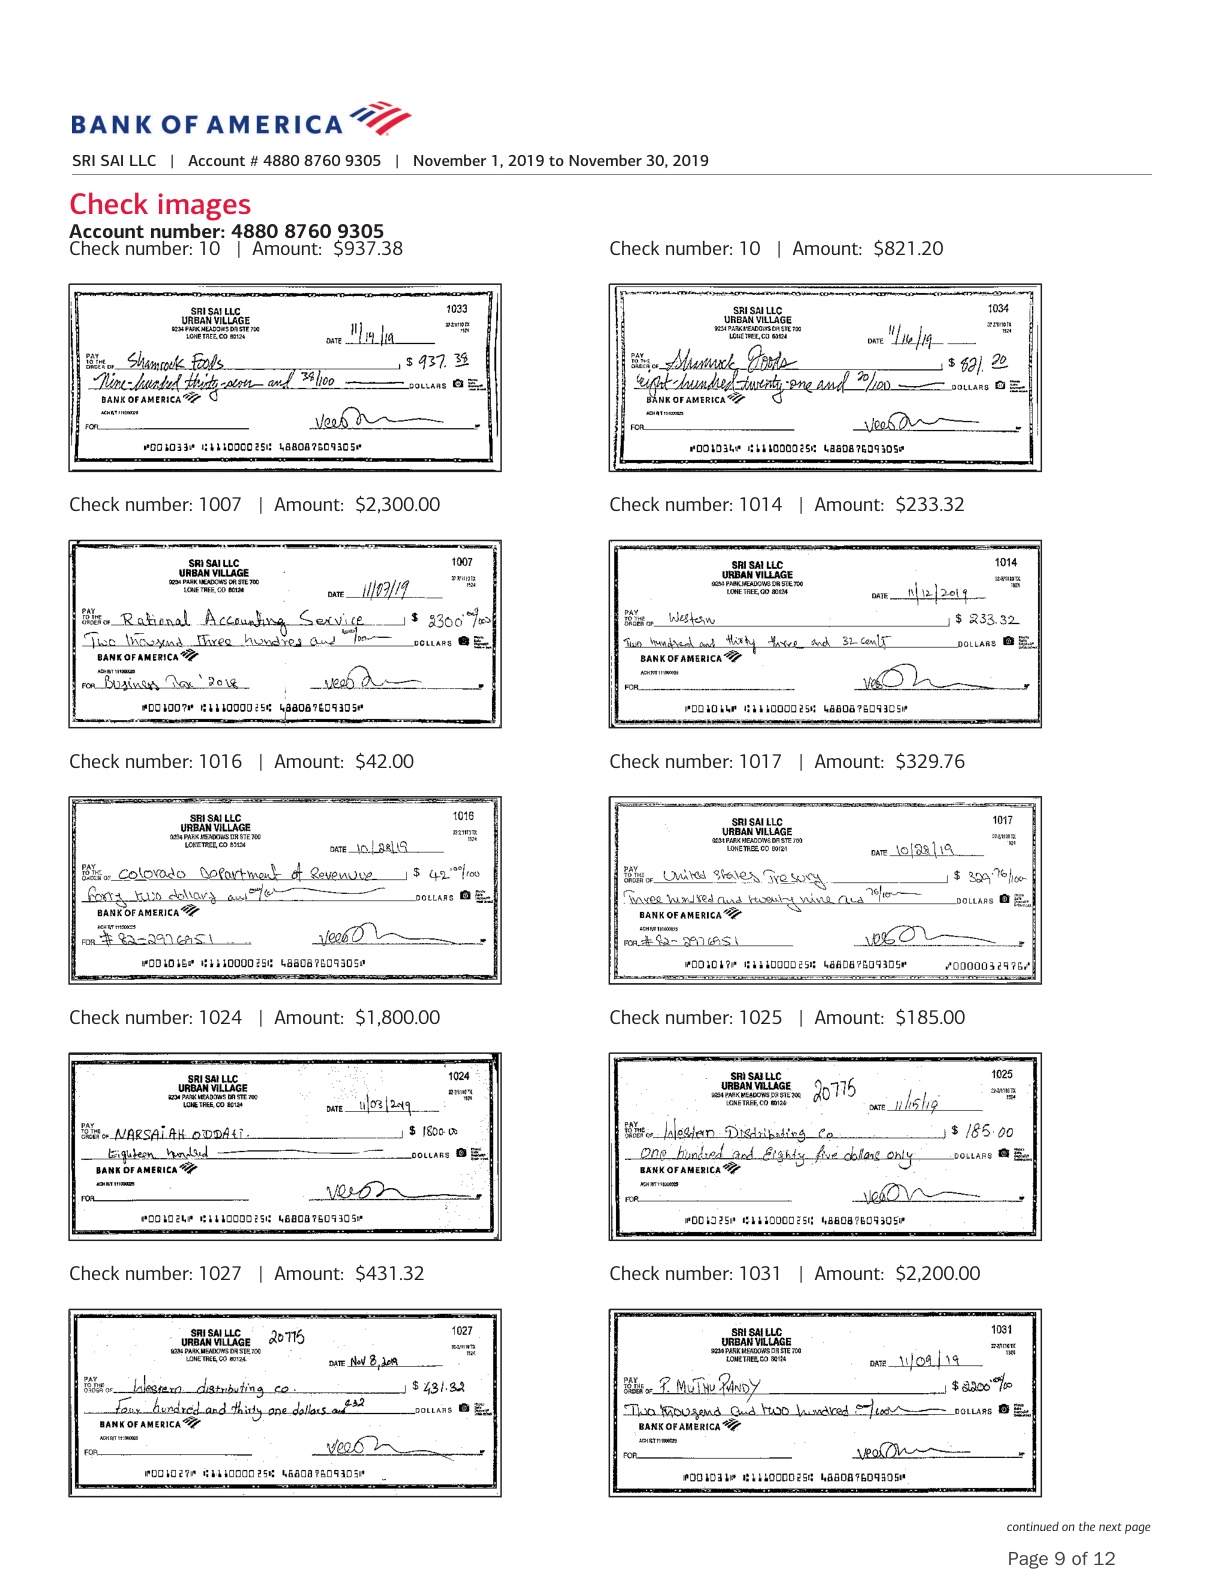 BANK OF AMERICA
SRI SAI LLC | Account # 4880 8760 9305 | November 1, 2019 to November 30, 2019
Check images
Account number: 4880 8760 9305
Check number: 10 | Amount: $937.38
SRI SAI LLC
URBAN VILLAGE
9234 PARK MEADOWS DR STE 700
LONE TREE, CO 80124
1033
DATE 11/14/19
PAY TO THE ORDER OF Shamrock Foods $ 937.38
Nine-hundred thirty-seven and 38/100 DOLLARS
BANK OF AMERICA
ACH R/T 111000025
FOR
⑈001033⑈ ⑆111000025⑆ 488087609305⑈
Check number: 10 | Amount: $821.20
SRI SAI LLC
URBAN VILLAGE
9234 PARK MEADOWS DR STE 700
LONE TREE, CO 80124
1034
DATE 11/16/19
PAY TO THE ORDER OF Shamrock Foods $ 821.20
eight-hundred-twenty-one and 20/100 DOLLARS
BANK OF AMERICA
ACH R/T 111000025
FOR
⑈001034⑈ ⑆111000025⑆ 488087609305⑈
Check number: 1007 | Amount: $2,300.00
SRI SAI LLC
URBAN VILLAGE
9234 PARK MEADOWS DR STE 700
LONE TREE, CO 80124
1007
DATE 11/07/19
PAY TO THE ORDER OF Rational Accounting Service $ 2300 00/100
Two thousand three hundred and /100 DOLLARS
BANK OF AMERICA
ACH R/T 111000025
FOR Business Tax '2018
⑈001007⑈ ⑆111000025⑆ 488087609305⑈
Check number: 1014 | Amount: $233.32
SRI SAI LLC
URBAN VILLAGE
9234 PARK MEADOWS DR STE 700
LONE TREE, CO 80124
1014
DATE 11/12/2019
PAY TO THE ORDER OF Western $ 233.32
Two hundred and thirty three and 32 cents DOLLARS
BANK OF AMERICA
ACH R/T 111000025
FOR
⑈001014⑈ ⑆111000025⑆ 488087609305⑈
Check number: 1016 | Amount: $42.00
SRI SAI LLC
URBAN VILLAGE
9234 PARK MEADOWS DR STE 700
LONE TREE, CO 80124
1016
DATE 10/28/19
PAY TO THE ORDER OF Colorado Department of Revenue $ 42 00/100
forty two dollars and DOLLARS
BANK OF AMERICA
ACH R/T 111000025
FOR # 82-2976951
⑈001016⑈ ⑆111000025⑆ 488087609305⑈
Check number: 1017 | Amount: $329.76
SRI SAI LLC
URBAN VILLAGE
9234 PARK MEADOWS DR STE 700
LONE TREE, CO 80124
1017
DATE 10/28/19
PAY TO THE ORDER OF United States Tresury $ 329 76/100
Three hundred and twenty nine and 76/100 DOLLARS
BANK OF AMERICA
ACH R/T 111000025
FOR # 82-2976951
⑈001017⑈ ⑆111000025⑆ 488087609305⑈ ⑇0000032976⑇
Check number: 1024 | Amount: $1,800.00
SRI SAI LLC
URBAN VILLAGE
9234 PARK MEADOWS DR STE 700
LONE TREE, CO 80124
1024
DATE 11/03/2019
PAY TO THE ORDER OF NARSAIAH ODDATI. $ 1800.00
Eighteen hundred DOLLARS
BANK OF AMERICA
ACH R/T 111000025
FOR
⑈001024⑈ ⑆111000025⑆ 488087609305⑈
Check number: 1025 | Amount: $185.00
SRI SAI LLC
URBAN VILLAGE
9234 PARK MEADOWS DR STE 700
LONE TREE, CO 80124
20775
1025
DATE 11/15/19
PAY TO THE ORDER OF Western Distributing Co $ 185.00
One hundred and Eighty five dollars only DOLLARS
BANK OF AMERICA
ACH R/T 111000025
FOR
⑈001025⑈ ⑆111000025⑆ 488087609305⑈
Check number: 1027 | Amount: $431.32
SRI SAI LLC
URBAN VILLAGE
9234 PARK MEADOWS DR STE 700
LONE TREE, CO 80124
20775
1027
DATE Nov 8, 2019
PAY TO THE ORDER OF Western distributing co. $ 431.32
Four hundred and thirty one dollars and DOLLARS
BANK OF AMERICA
ACH R/T 111000025
FOR
⑈001027⑈ ⑆111000025⑆ 488087609305⑈
Check number: 1031 | Amount: $2,200.00
SRI SAI LLC
URBAN VILLAGE
9234 PARK MEADOWS DR STE 700
LONE TREE, CO 80124
1031
DATE 11/09/19
PAY TO THE ORDER OF P. MUTHU PANDY $ 2200 00/100
Two thousand and two hundred /100 DOLLARS
BANK OF AMERICA
ACH R/T 111000025
FOR
⑈001031⑈ ⑆111000025⑆ 488087609305⑈
continued on the next page
Page 9 of 12